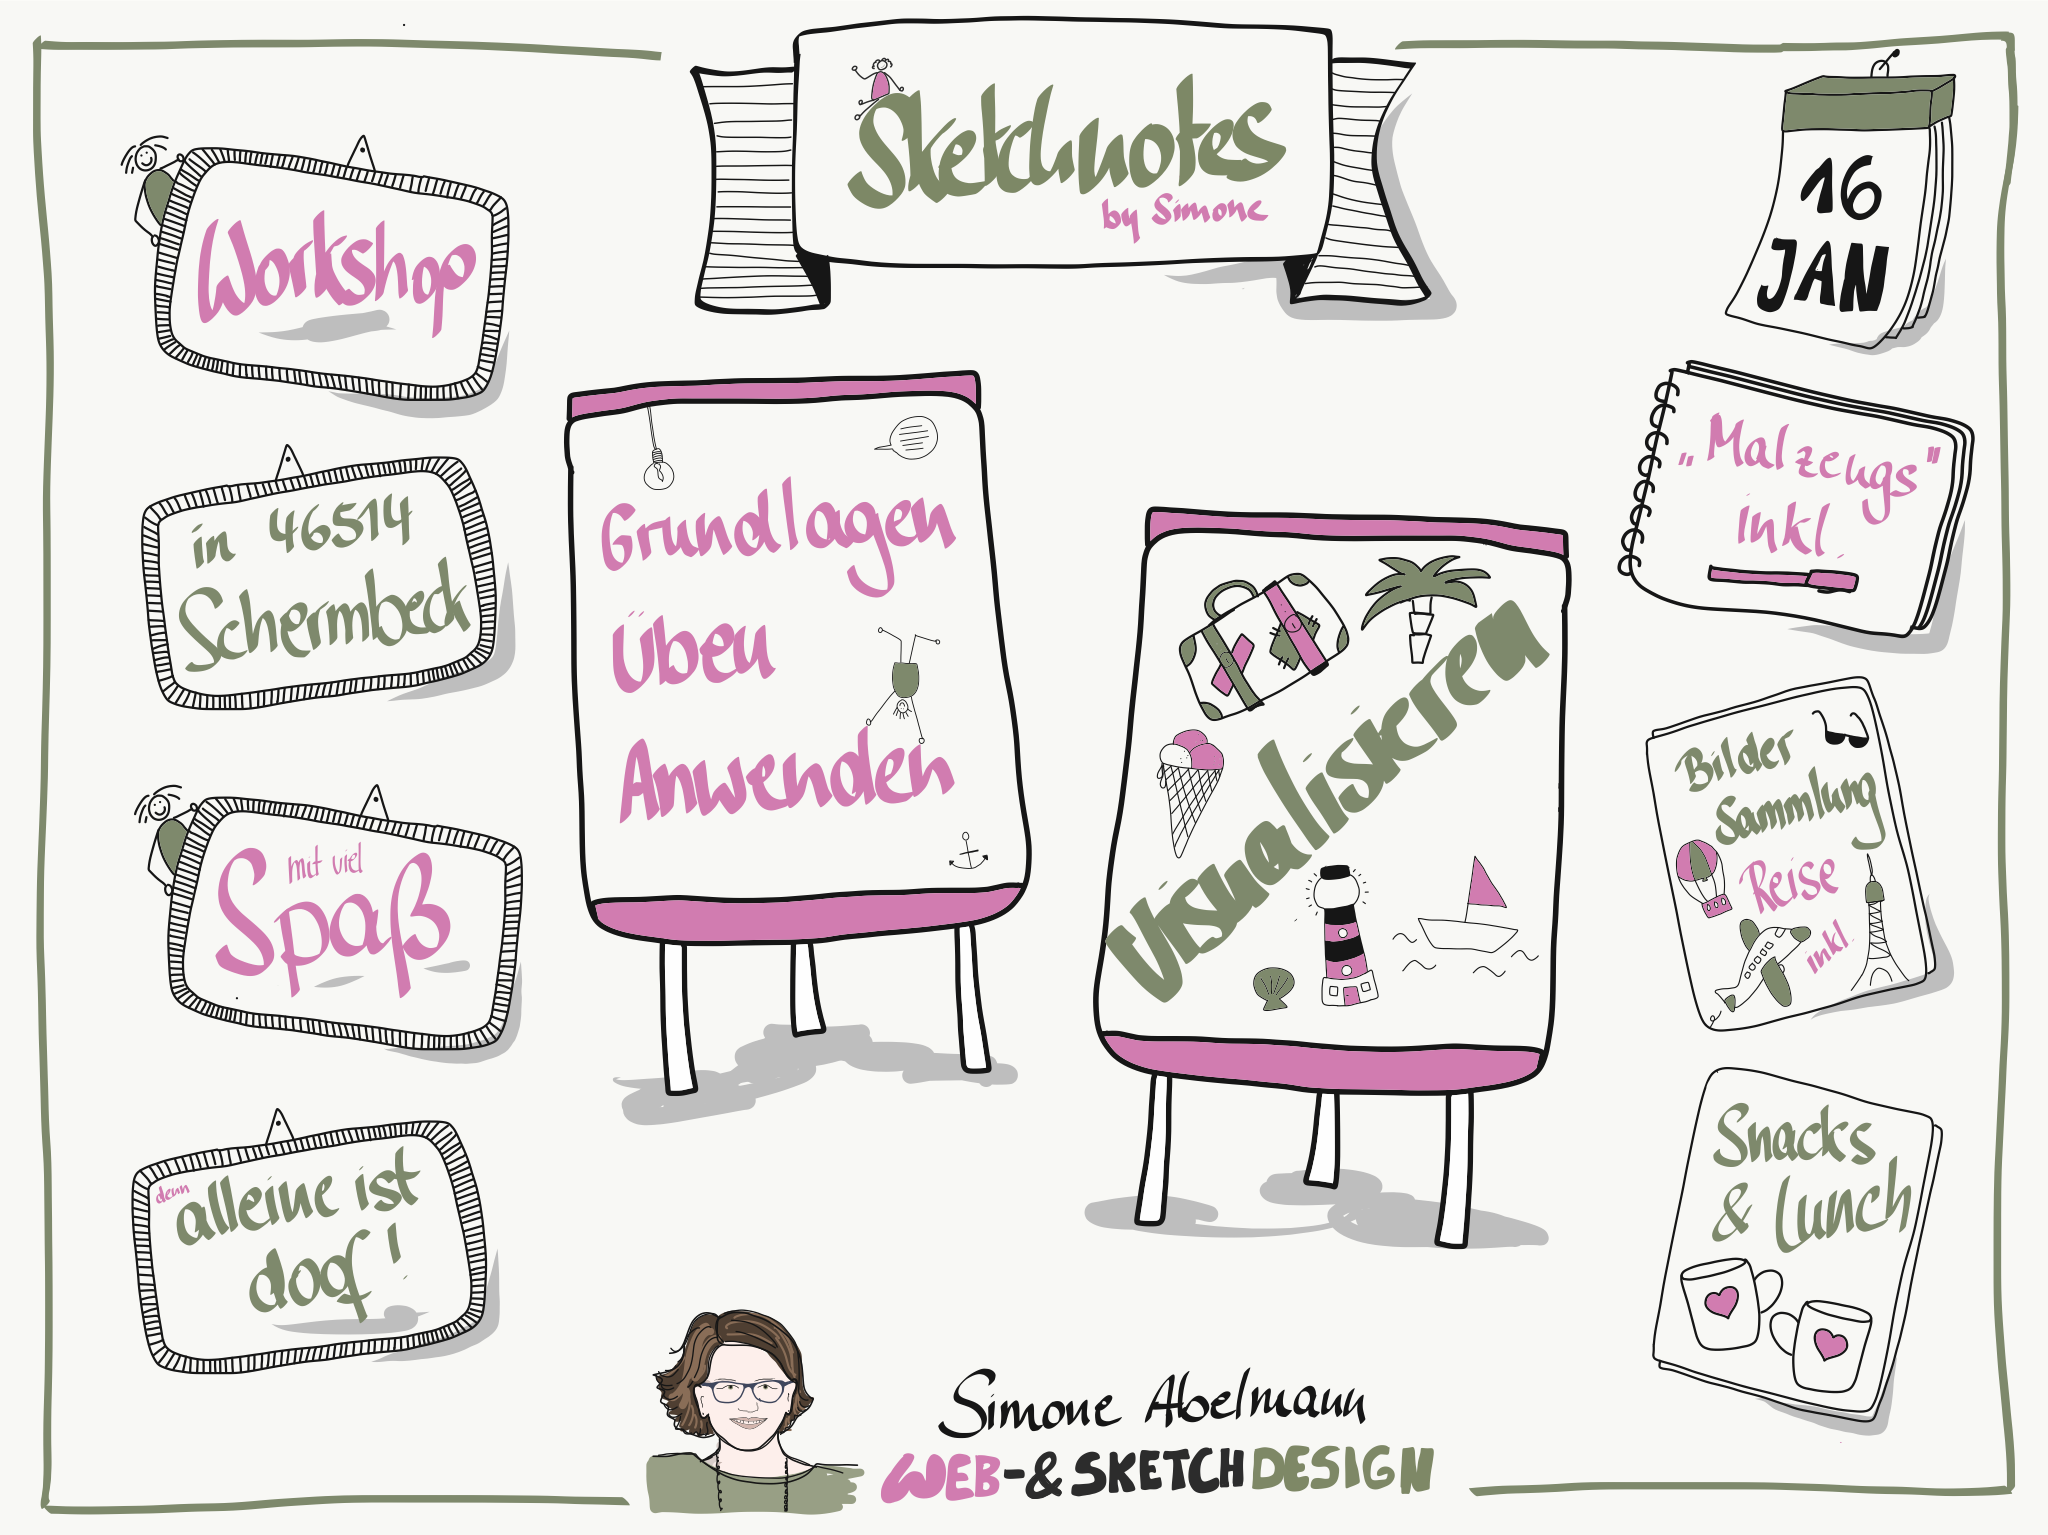 Sketchnotes
by Simone
Workshop
in 46514
Schermbeck
mit viel
Spaß
denn
alleine ist
doof!
Grundlagen
Üben
Anwenden
Visualisieren
16
JAN
„Malzeugs"
inkl.
Bilder
Sammlung
Reise
inkl.
Snacks
& Lunch
Simone Abelmann
WEB-& SKETCHDESIGN